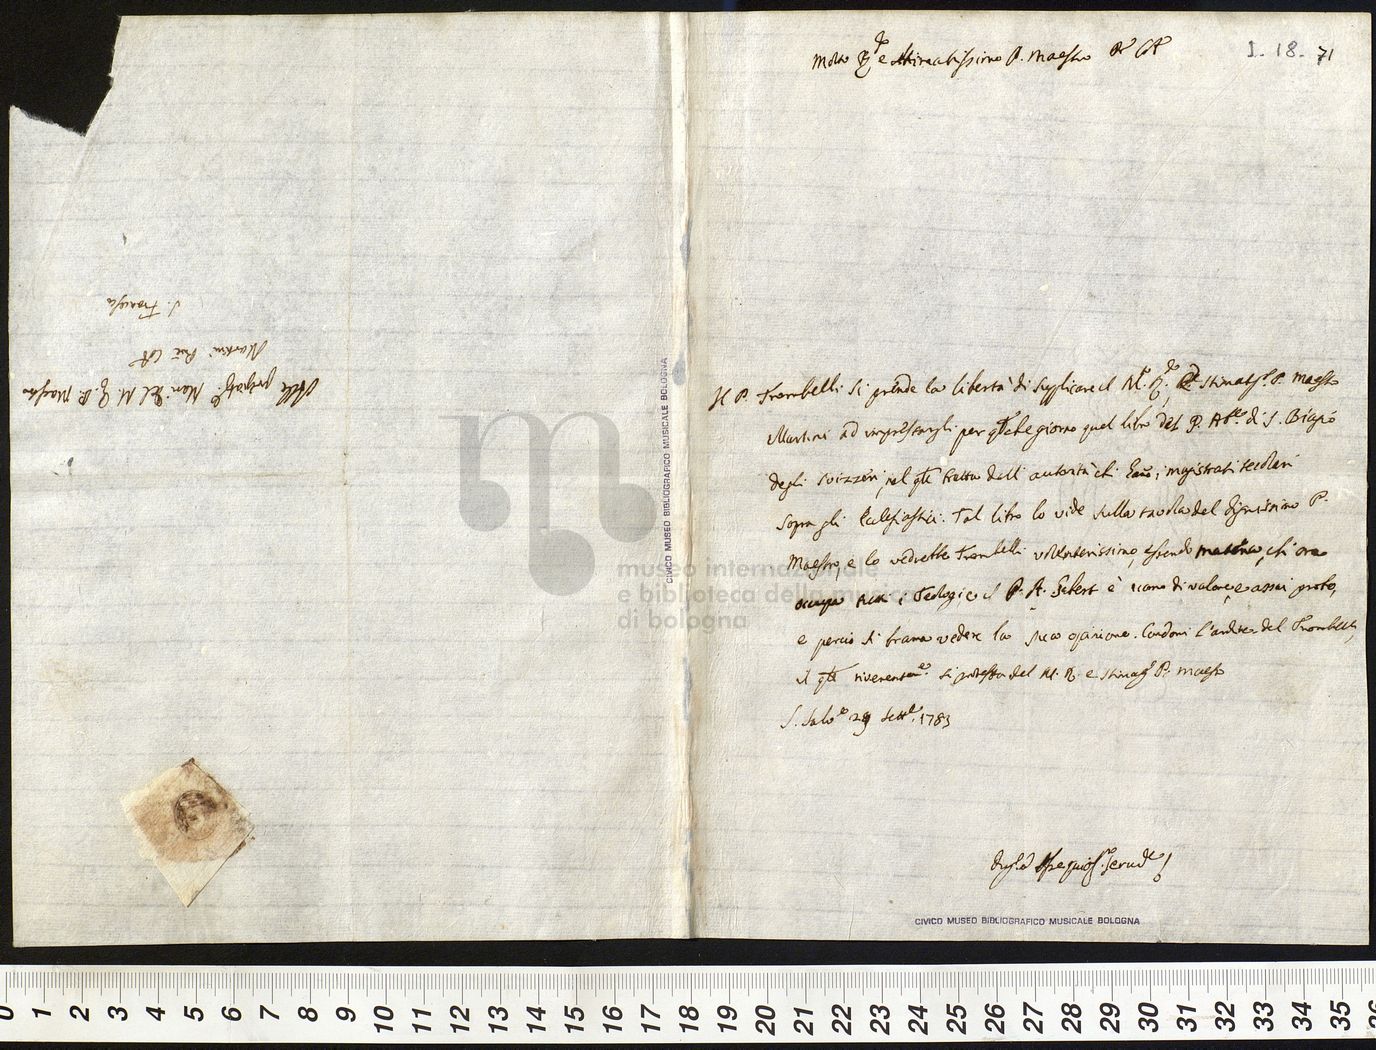 Molto R.do e Stimatissimo P. Maestro
I. 18. 71
Il P. Trombelli si prende la libertà di supplicare il M.to R.do e Stimatis.o P. Maestro
Martini ad imprestargli per qlche giorno quel libro del P. Ab.te di S. Biagio
degli svizzeri, nel qle tratta dell' autorità chi i magistrati secolari
sopra gli Eclesiastici. Tal libro lo vide sulla tavola del dignissimo P.
Maestro, e lo vedrebbe Trombelli volenterissimo, essendo materia, chi ora
occupa tutti i Teologi, e il P. A. Gebert è uomo di valore, e assai
e perciò si brama vedere la sua opinione. Condoni l'ardire del Trombelli,
il qle riverentem.e si protesta del M. R. e Stimatis.o P. Maestro
S. Salv.e 29 Sett.e 1783
Alle
Man. del M. R. P. Maestro
Martini
S. Francesco
CIVICO MUSEO BIBLIOGRAFICO MUSICALE BOLOGNA
CIVICO MUSEO BIBLIOGRAFICO MUSICALE BOLOGNA
museo internazionale
e biblioteca della musica
di bologna
0 1 2 3 4 5 6 7 8 9 10 11 12 13 14 15 16 17 18 19 20 21 22 23 24 25 26 27 28 29 30 31 32 33 34 35 36